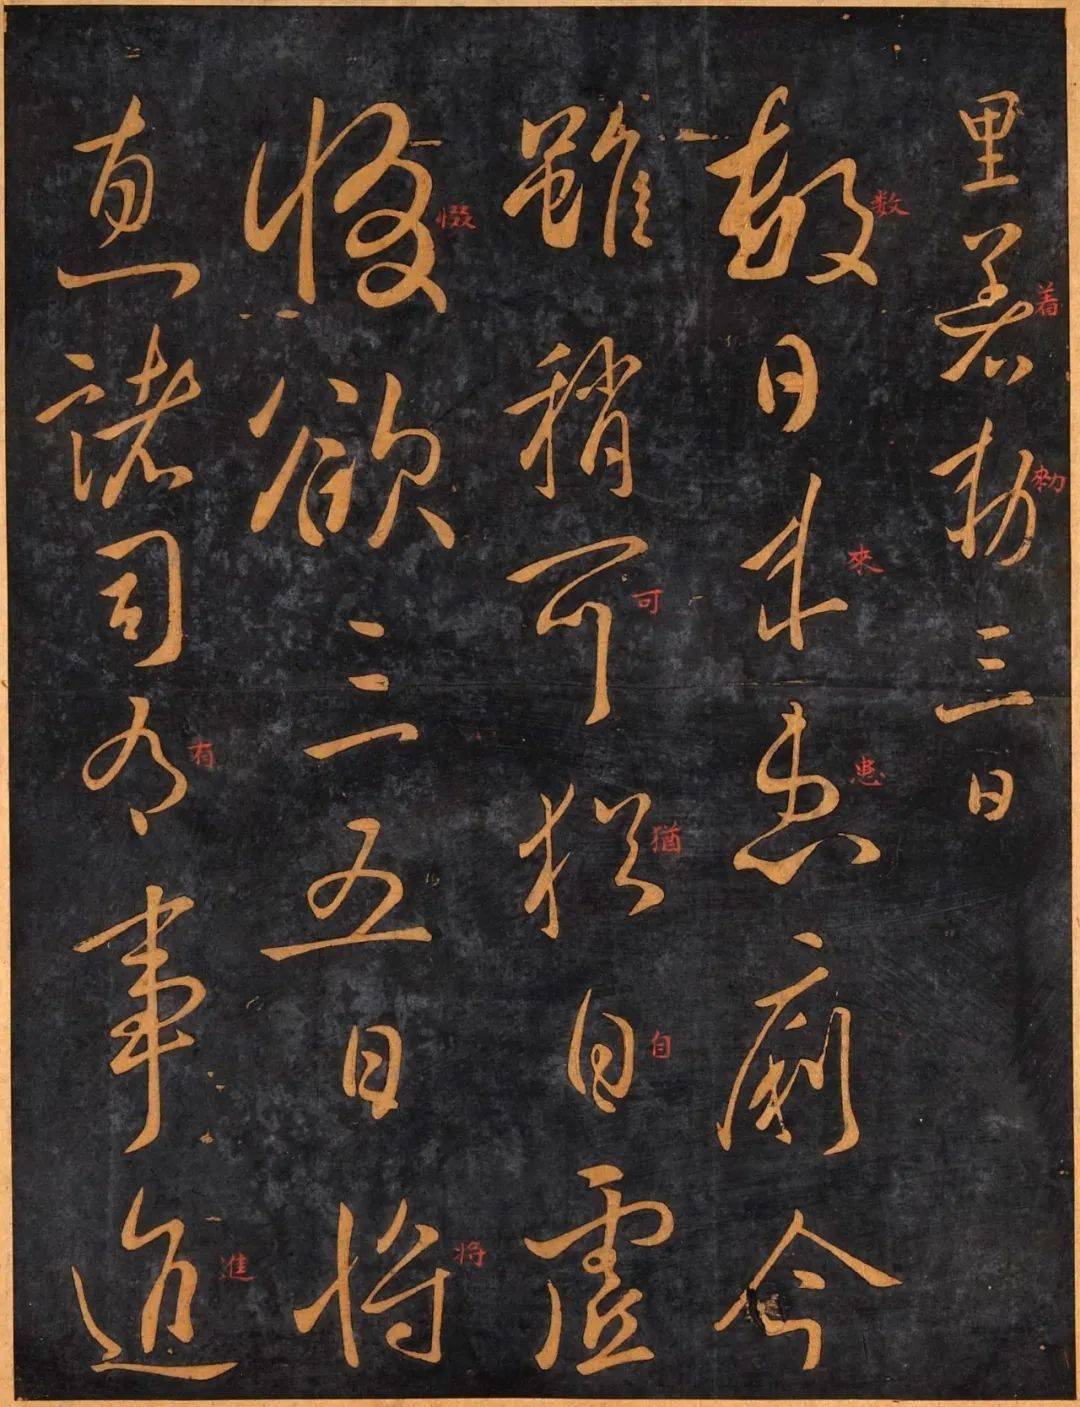 里着勑三日
着
勑
數日来患痢今
数
來
患
雖稍可猶自虚
可
猶
自
惙欲三五日將
惙
将
息諸司有事進
有
進